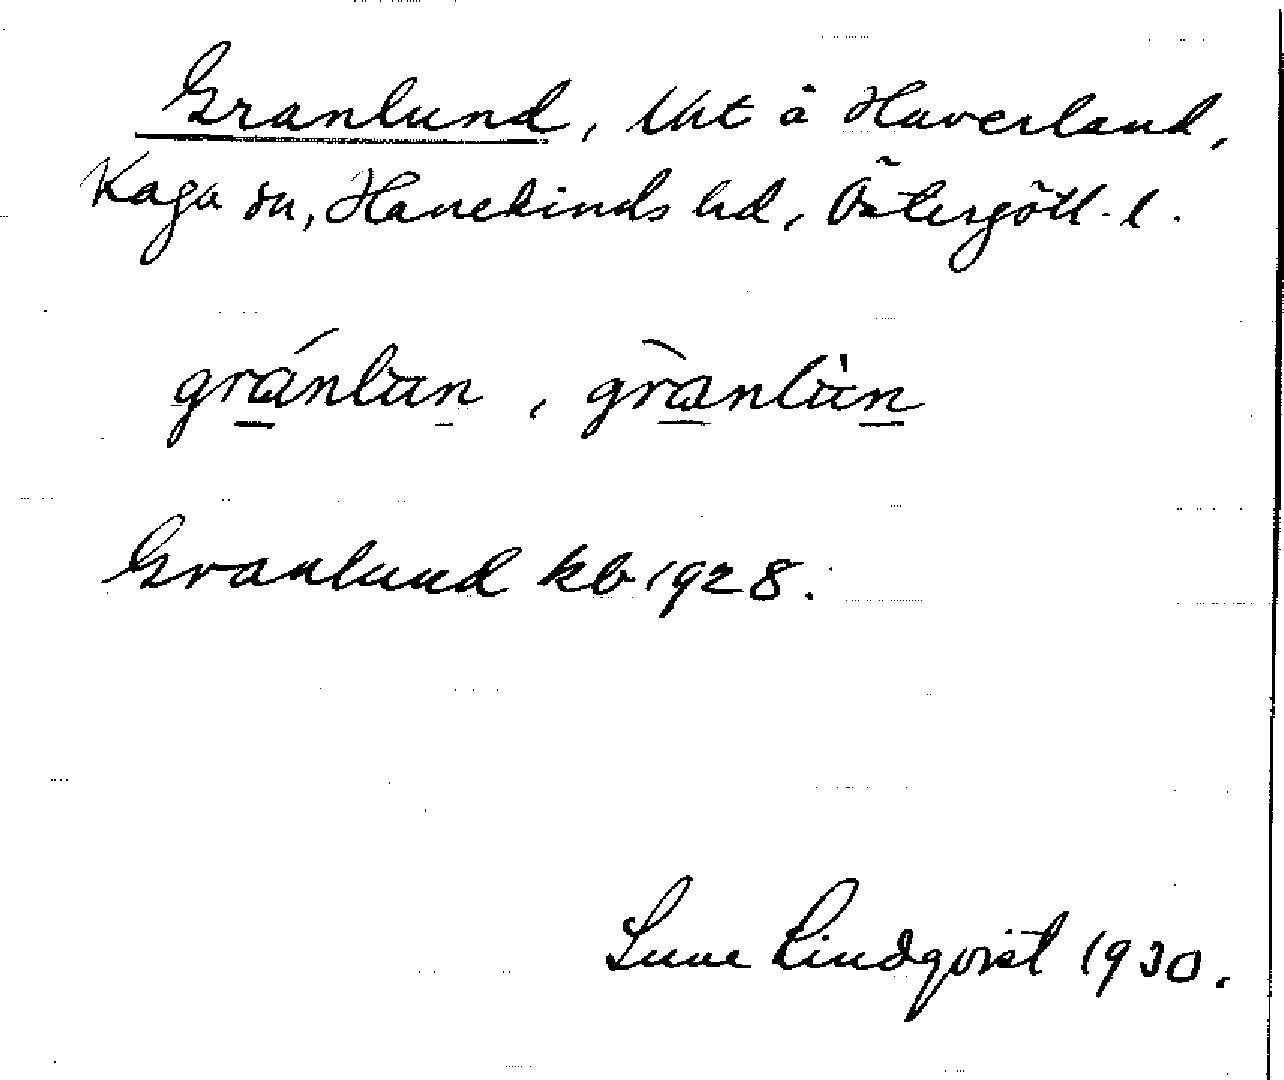 Granlund, lht å Haverland,
Kaga sn, Hanekinds hd, Östergötl. l.
gránlun, grànlùn
Granlund kb 1928.
Sune Lindqvist 1930.